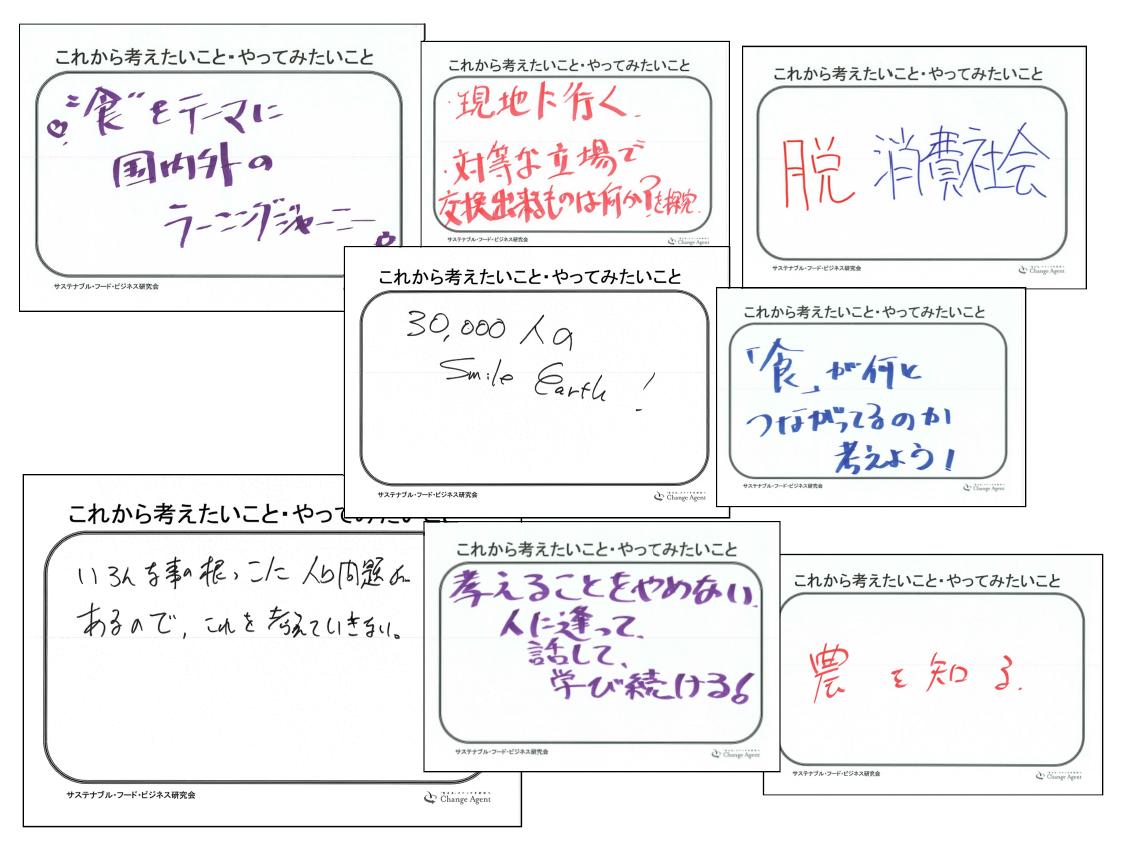 これから考えたいこと・やってみたいこと
"食"をテーマに
国内外の
ラーニングジャーニー
サステナブル・フード・ビジネス研究会
これから考えたいこと・やってみたいこと
・現地に行く。
・対等な立場で
交換出来るものは何か?を探究
サステナブル・フード・ビジネス研究会
Change Agent
これから考えたいこと・やってみたいこと
脱 消費社会
サステナブル・フード・ビジネス研究会
Change Agent
これから考えたいこと・やってみたいこと
30,000人の
Smile Earth!
サステナブル・フード・ビジネス研究会
Change Agent
これから考えたいこと・やってみたいこと
「食」が何と
つながってるのか
考えよう!
サステナブル・フード・ビジネス研究会
Change Agent
これから考えたいこと・やってみたいこと
いろんな事の根っこに人口問題が
あるので、これを考えていきたい。
サステナブル・フード・ビジネス研究会
Change Agent
これから考えたいこと・やってみたいこと
考えることをやめない。
人に逢って、
話して、
学び続ける!
サステナブル・フード・ビジネス研究会
Change Agent
これから考えたいこと・やってみたいこと
農を知る。
サステナブル・フード・ビジネス研究会
Change Agent